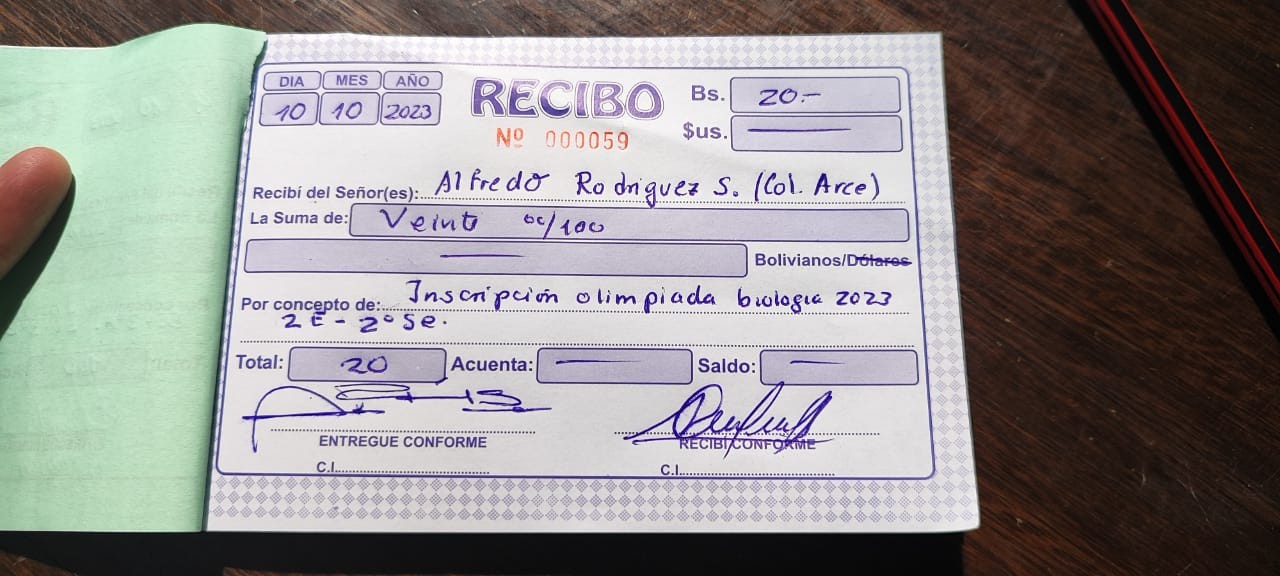 DIA MES AÑO
10 10 2023
RECIBO
Nº 000059
Bs. 20.-
$us.
Recibí del Señor(es): Alfredo Rodriguez S. (Col. Arce)
La Suma de: Veinte 00/100
Bolivianos/Dólares
Por concepto de: Inscripción olimpiada biologia 2023
2E - 2º Se.
Total: 20 Acuenta: Saldo:
ENTREGUE CONFORME RECIBI CONFORME
C.I. C.I.